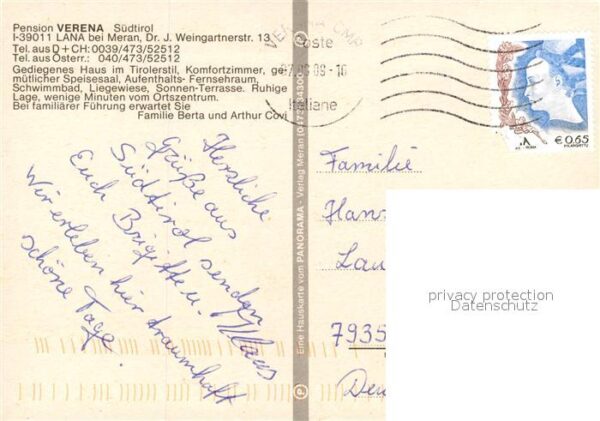 Pension VERENA Südtirol
I-39011 LANA bei Meran, Dr. J. Weingartnerstr. 13
Tel. aus D + CH: 0039/473/52512
Tel. aus Österr.: 040/473/52512
Gediegenes Haus im Tirolerstil, Komfortzimmer, ge-
mütlicher Speisesaal, Aufenthalts- Fernsehraum,
Schwimmbad, Liegewiese, Sonnen-Terrasse. Ruhige
Lage, wenige Minuten vom Ortszentrum.
Bei familiärer Führung erwartet Sie
Familie Berta und Arthur Covi
Herzliche
Grüße aus
Südtirol senden
Euch Brigitte u. Klaus
Wir erleben hier traumhaft
schöne Tage.
Eine Hauskarte vom PANORAMA - Verlag Meran (0473) 34300
CMP
oste
09 - 16
italiane
€ 0,65
Familie
Hans
Lau
7935
Deu
privacy protection
Datenschutz